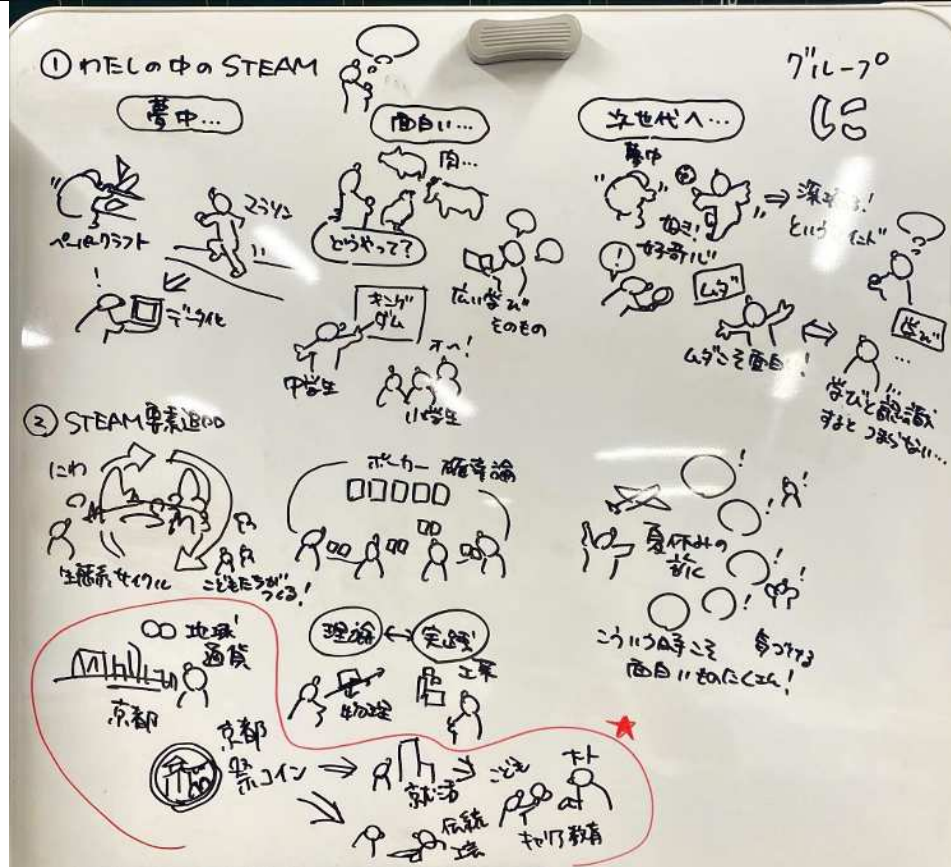 ①わたしの中のSTEAM
グループ
夢中…
面白い…
次世代へ…
ペーパークラフト
マラソン
データ化
!
肉…
どうやって?
広い学び
そのもの
キング
ダム
オー!
中学生
小学生
夢中
好き!
好奇心
⇒
という
!
ムダ
ムダこそ面白い!
学び
…
学びと認識
するとつまらない…
②STEAM要素追加
にわ
生態系サイクル
こどもたちが
つくる!
ポーカー 確率論
夏休みの
こういう時こそ
面白いものたくさん!
地域
通貨
京都
理論↔実践
物理
工業
京都
コイン
就活
こども
伝統
工芸
キャリア教育